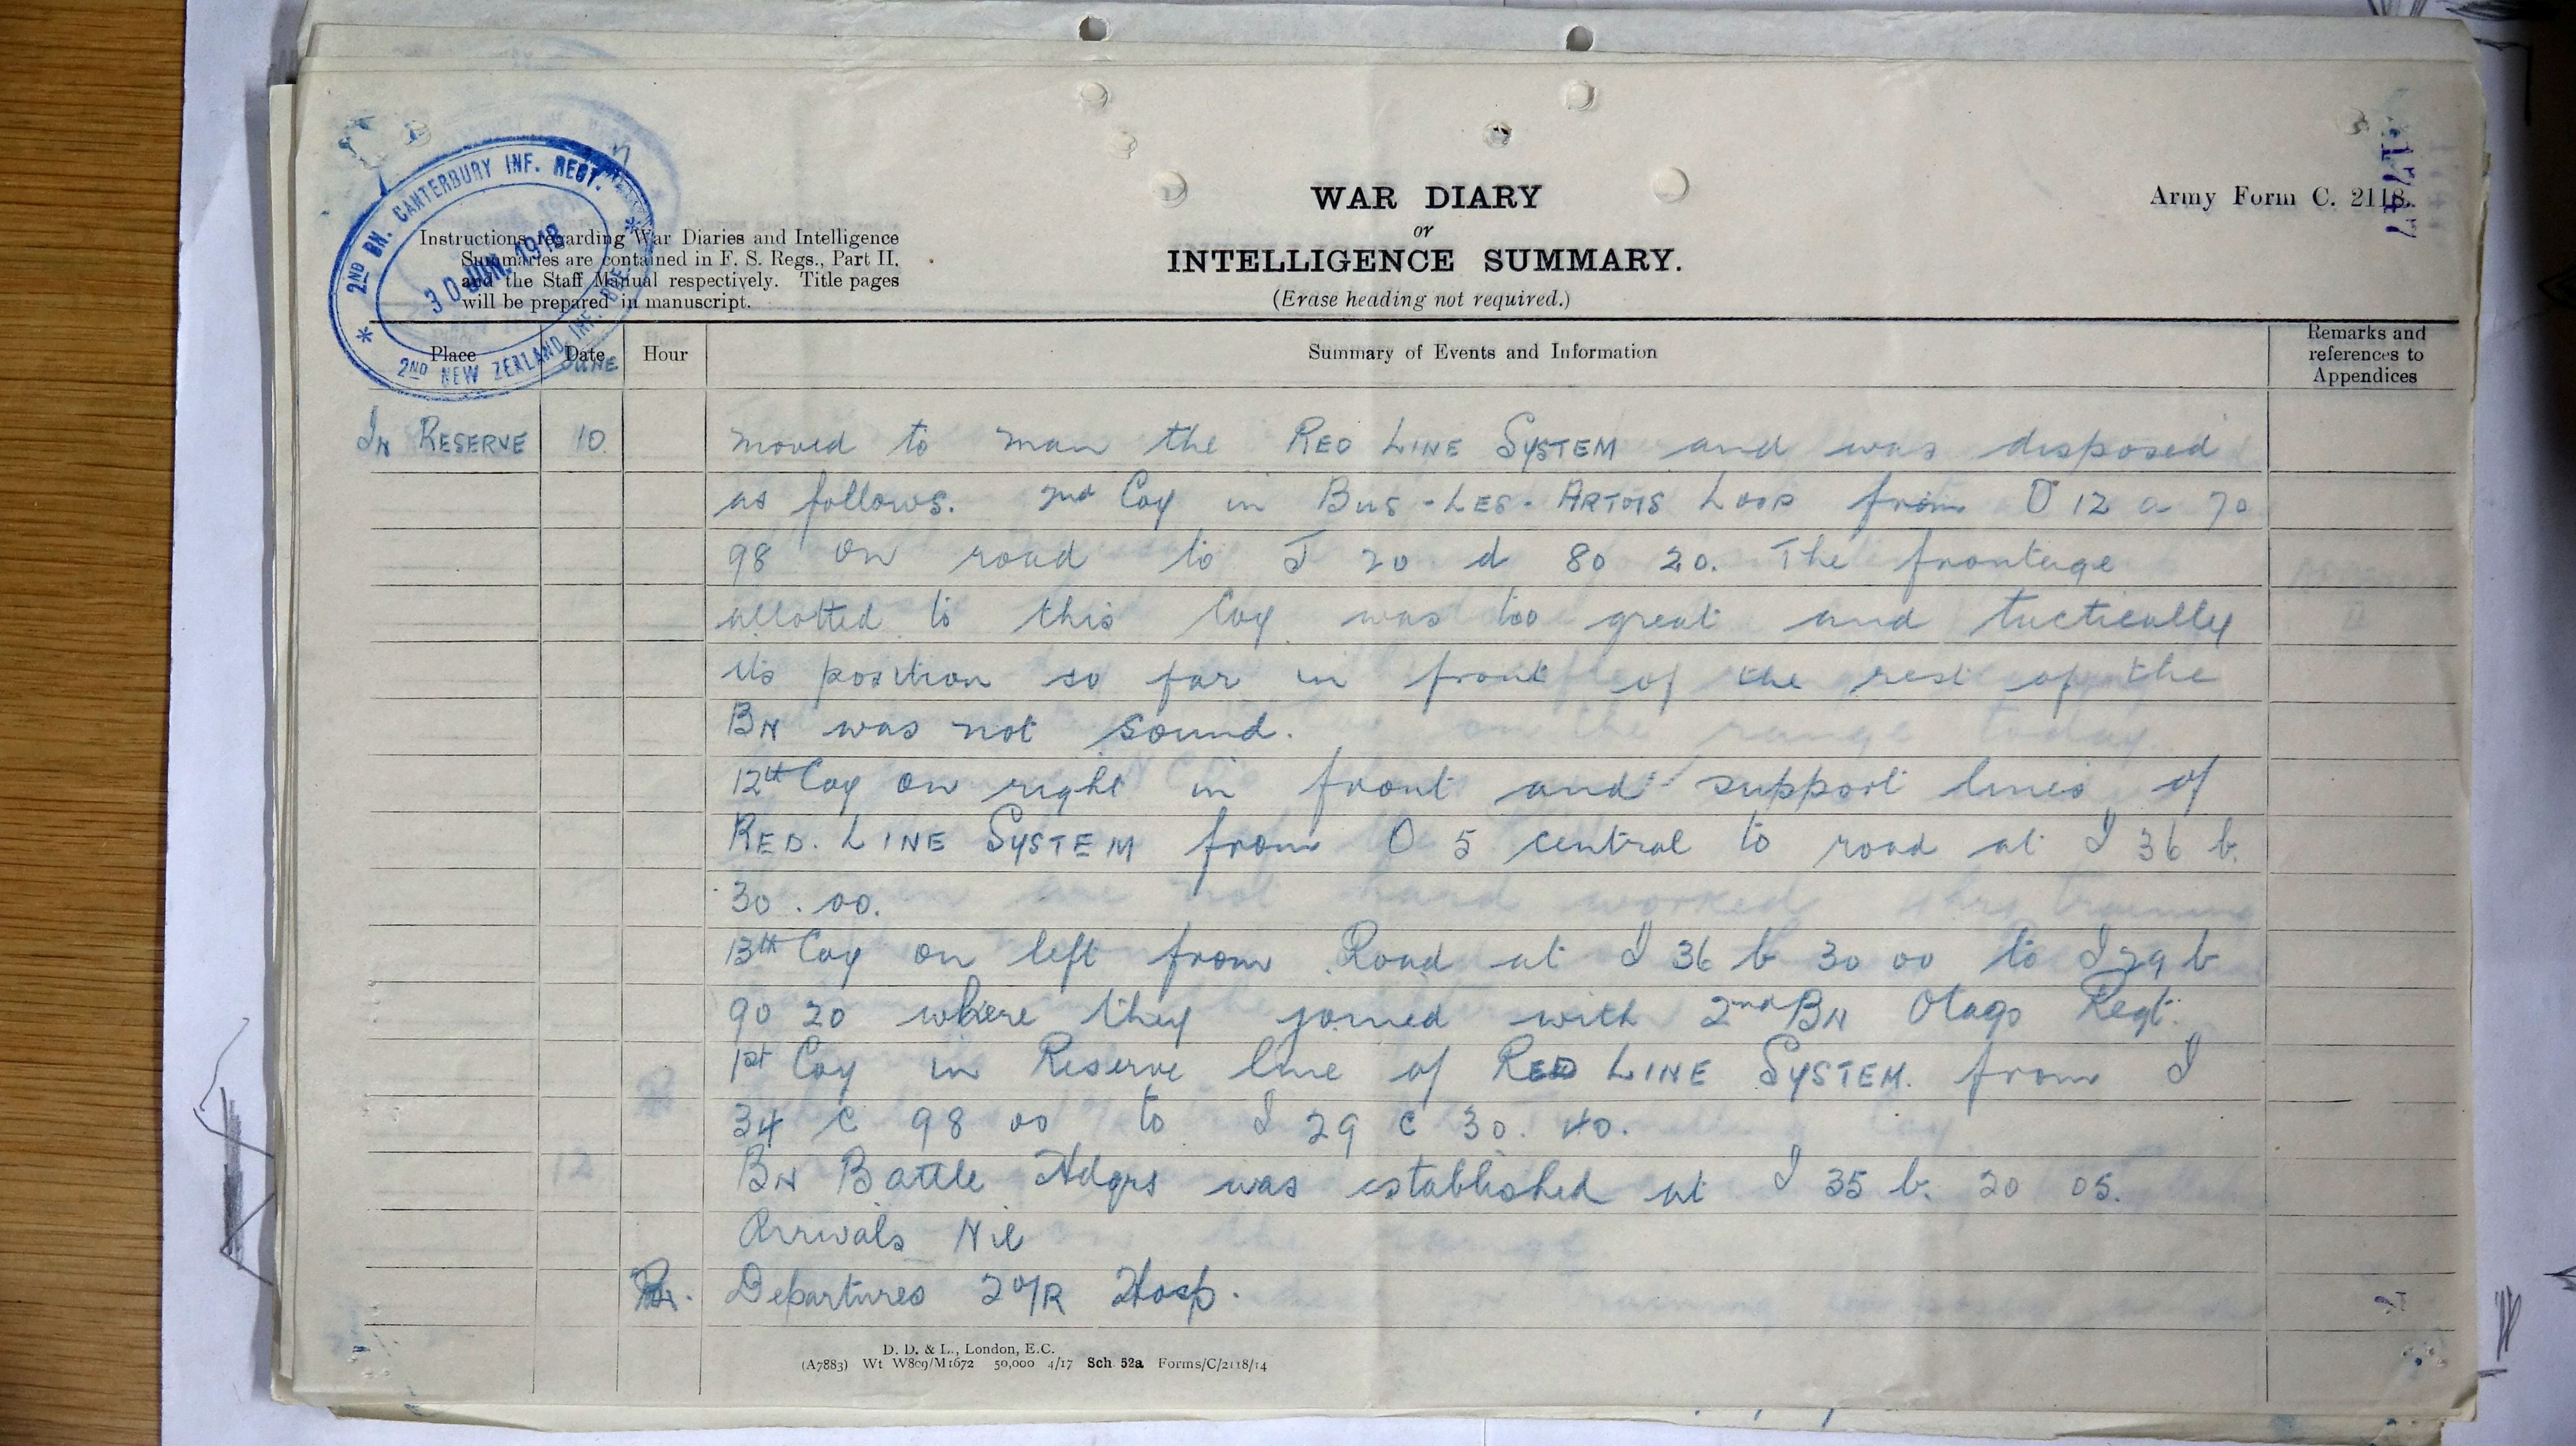 2ND BN. CANTERBURY INF. REGT.
30 JUN. 1918
2ND NEW ZEALAND INF. BDE.
Instructions regarding War Diaries and Intelligence
Summaries are contained in F. S. Regs., Part II.
and the Staff Manual respectively. Title pages
will be prepared in manuscript.
WAR DIARY
or
INTELLIGENCE SUMMARY.
(Erase heading not required.)
Army Form C. 2118.
Place Date Hour Summary of Events and Information Remarks and references to Appendices
JUNE
IN RESERVE 10. moved to man the RED LINE SYSTEM and was disposed
as follows. 2nd Coy in BUS-LES-ARTOIS LOOP from O 12 a 70
98 on road to J 20 d 80 20. The frontage
allotted to this Coy was too great and tactically
its position so far in front of the rest of the
BN was not sound.
12th Coy on right in front and support lines of
RED. LINE SYSTEM from O 5 central to road at I 36 b.
30.00.
13th Coy on left from Road at I 36 b 30 00 to I 29 b
90 20 where they joined with 2nd BN Otago Regt.
1st Coy in Reserve line of RED LINE SYSTEM. from I
34 c 98 00 to I 29 c 30. 40.
BN Battle Hdqrs was established at I 35 b. 20 05.
Arrivals Nil
Departures 2 O/R Hosp.
D. D. & L., London, E.C.
(A7883) Wt W809/M1672 50,000 4/17 Sch. 52a Forms/C/2118/14